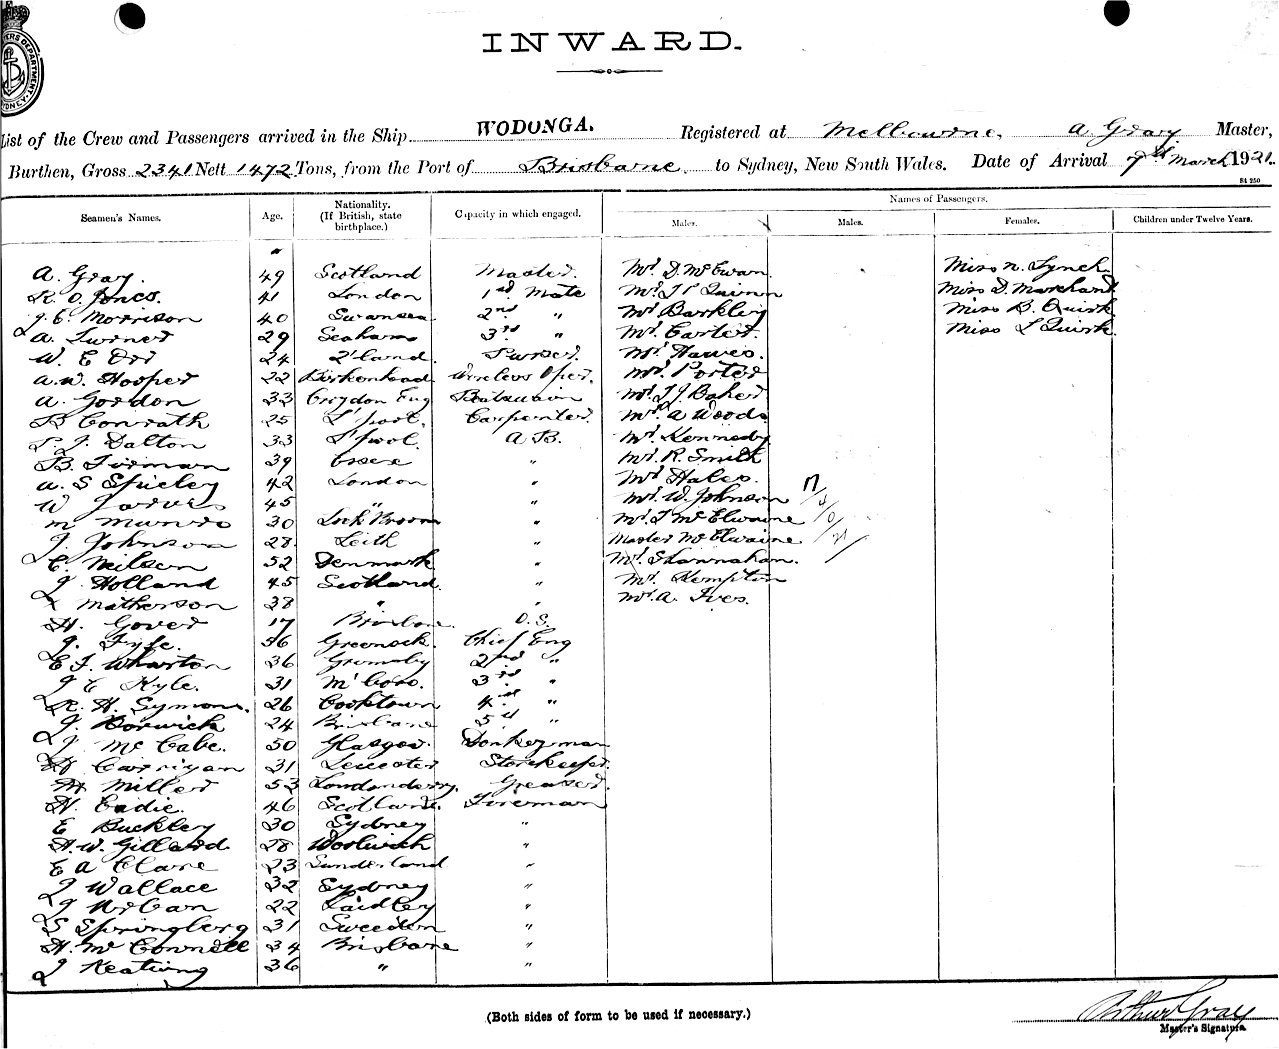 INWARD.
List of the Crew and Passengers arrived in the Ship WODONGA. Registered at Melbourne, A Gray Master,
Burthen, Gross 2341 Nett 1472 Tons, from the Port of Brisbane to Sydney, New South Wales. Date of Arrival 7th March 1921.
St 250
Seamen's Names. Age. Nationality. (If British, state birthplace.) Capacity in which engaged. Names of Passengers.
Males. Males. Females. Children under Twelve Years.
A. Gray. 49 Scotland Master. Mr D. McEwan. Miss N. Lynch
R. O. Jones. 41 London 1st Mate Mr J P Quinn Miss D. Marchant
J. C. Morrison 40 Swansea 2nd " Mr Barkley Miss B. Quirk
A. Turner 29 Seaham 3rd " Mr Carter. Miss L Quirk
W. E Orr 24 Z'land Purser. Mr Hawes.
A. W. Hooper 22 Birkenhead Wireless Oper. Mr Porter
A. Gordon 33 Croydon Eng Boatswain Mr T J Baker
B Conrath 25 L'pool. Carpenter. Mr A Woods
P. J. Dalton 33 L'pool. A B. Mr Kennedy
B. Firman 39 Essex " Mr R. Smith
A. S Spicley 42 London " Mr Hales.
W Jarvis 45 " " Mr W. Johnson
M Munro 30 Loch Broom " Mr T McElwaine
J. Johnson 28 Leith " Master McElwaine
C. Neilson 52 Denmark " Mr Shannahan.
J. Holland 45 Scotland. " Mr Kempton
Matherson 38 " " Mr A. Ives.
H. Gover 17 Brisbane. O. S.
J. Fyfe. 56 Greenock. Chief Eng
E. J. Wharton 36 Grimsby 2nd "
J C Kyle. 31 3rd "
R. H. Symons. 26 Cooktown 4th "
J. Borwick 24 Brisbane 5th "
J. McCabe. 50 Glasgow. Donkeyman
Carrigan 31 Leicester Storekeeper.
Miller 53 Londonderry. Greaser.
H. Eadie. 46 Scotland. Fireman
E Buckley 30 Sydney "
H. W. Gillard 28 Woolwich "
E A Clare 23 Sunderland "
J Wallace 32 Sydney "
22 Laidley "
S Springberg 31 Sweeden "
H. McConnell 34 Brisbane "
J Keating 36 " "
(Both sides of form to be used if necessary.)
Arthur Gray
Master's Signature.